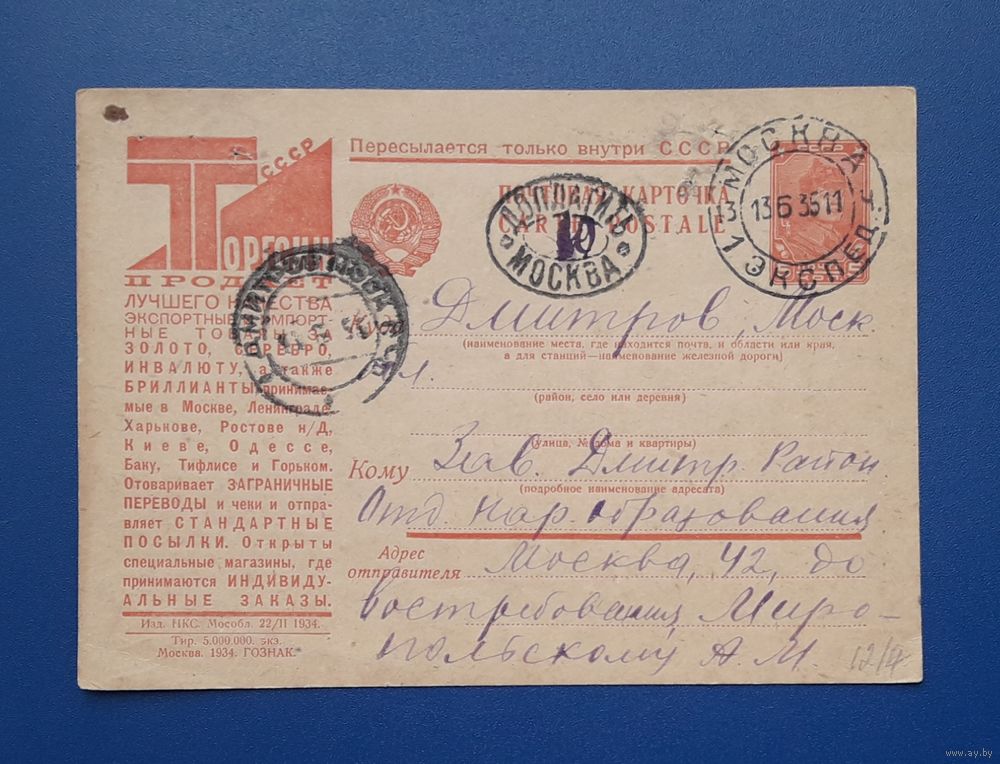 ТОРГСИН
СССР
ПРОДАЕТ
ЛУЧШЕГО КАЧЕСТВА
ЭКСПОРТНЫЕ И ИМПОРТ-
НЫЕ ТОВАРЫ ЗА
ЗОЛОТО, СЕРЕБРО,
ИНВАЛЮТУ, а также
БРИЛЛИАНТЫ, принимае-
мые в Москве, Ленинграде,
Харькове, Ростове н/Д,
Киеве, Одессе,
Баку, Тифлисе и Горьком.
Отоваривает ЗАГРАНИЧНЫЕ
ПЕРЕВОДЫ и чеки и отпра-
вляет СТАНДАРТНЫЕ
ПОСЫЛКИ. Открыты
специальные магазины, где
принимаются ИНДИВИДУ-
АЛЬНЫЕ ЗАКАЗЫ.
Изд. НКС. Мособл. 22/II 1934.
Тир. 5.000.000. экз.
Москва. 1934. ГОЗНАК.
Пересылается только внутри СССР
ПОЧТОВАЯ КАРТОЧКА
CARTE POSTALE
ДОПЛАТИТЬ
10
МОСКВА
МОСКВА
13 6 35 11
1 ЭКСПЕД.
Куда Дмитров, Моск.
(наименование места, где находится почта, и области или края,
а для станций—наименование железной дороги)
(район, село или деревня)
(улица, № дома и квартиры)
Кому Зав. Дмитр. Район
(подробное наименование адресата)
Отд. нар. образования
Адрес
отправителя Москва, 42, до
востребования, Миро-
польскому А. М.
12/4
www.ay.by